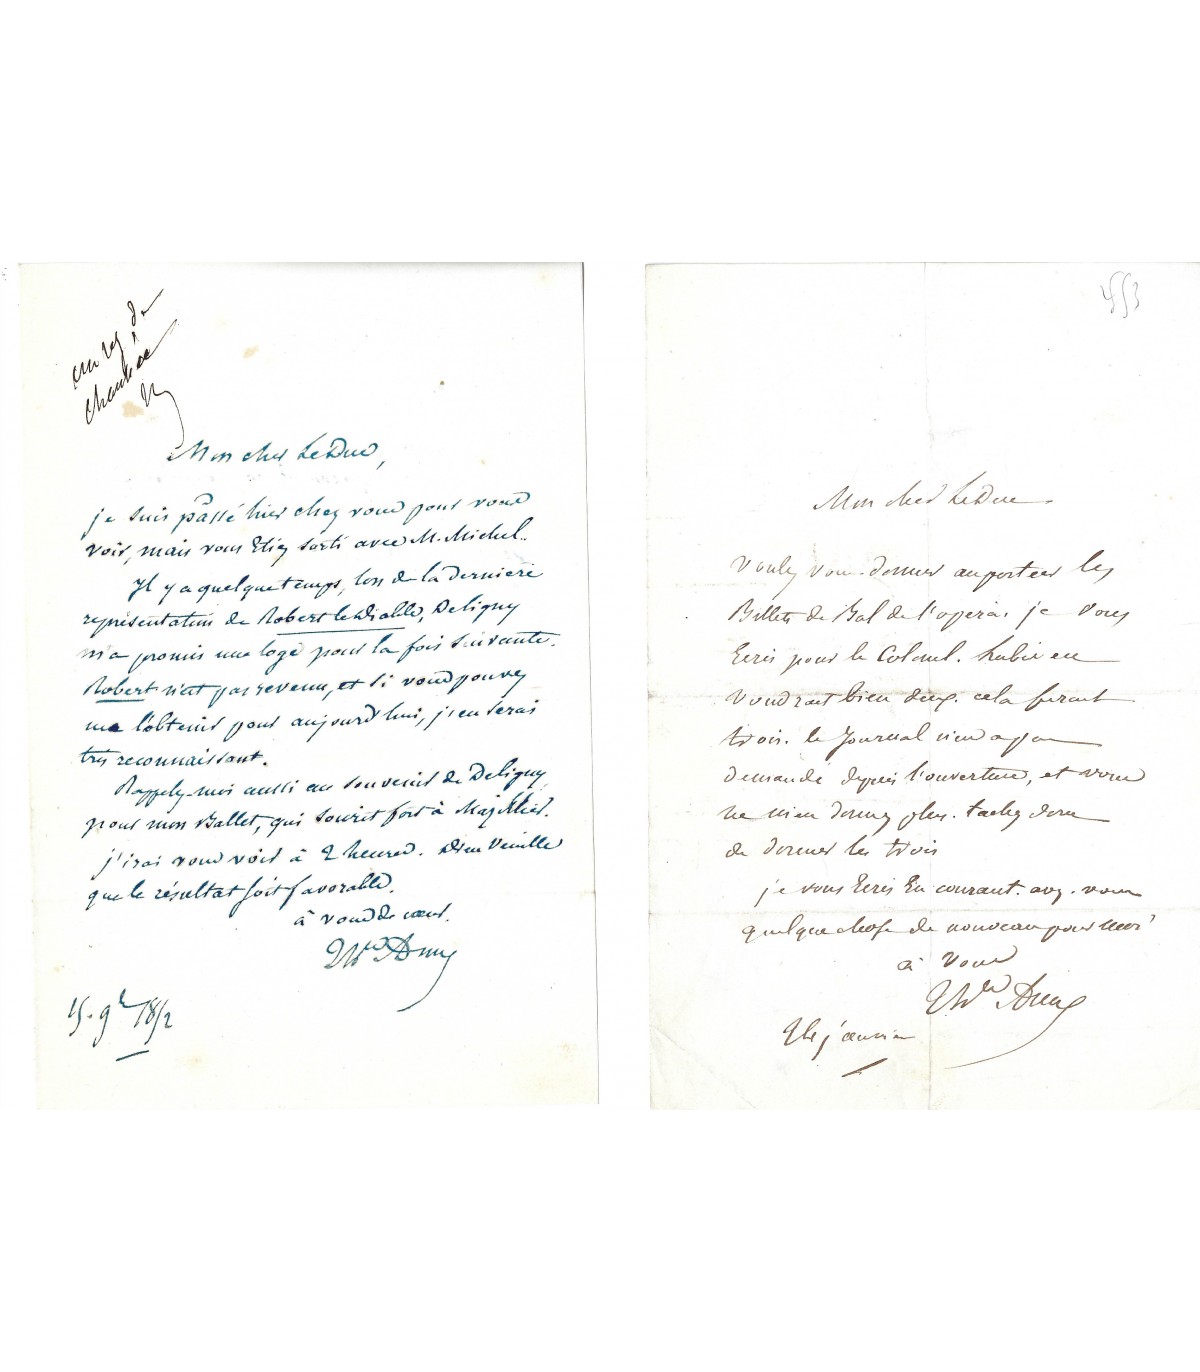 en rez de
chaussée
Mon cher LeDuc,
je suis passé hier chez vous pour vous
voir, mais vous Etiez sorti avec M. Michel..
Il y a quelque temps, lors de la dernière
représentation de Robert le Diable, Deligny
m'a promis une loge pour la fois suivante.
Robert n'est pas revenu, et si vous pouvez
me l'obtenir pour aujourd'hui, j'en serai
très reconnaissant.
Rappelez-moi aussi au souvenir de Deligny
pour mon Ballet, qui sourit fort à
j'irai vous voir à 2 heures. Dieu Veuille
que le résultat soit favorable.
à vous de cœur.
15. 9bre 1852
Mon cher LeDuc
Voulez vous donner au porteur les
Billets de Bal de l'opéra. je vous
Ecris pour le Colonel. en
Voudrait bien deux. cela ferait
trois. le Journal n'en a pas
demandé depuis l'ouverture, et vous
ne m'en donnez plus. tachez donc
de donner les trois
je vous Ecris En courant. avez-vous
quelque chose de nouveau pour moi
à Vous
2 janvier